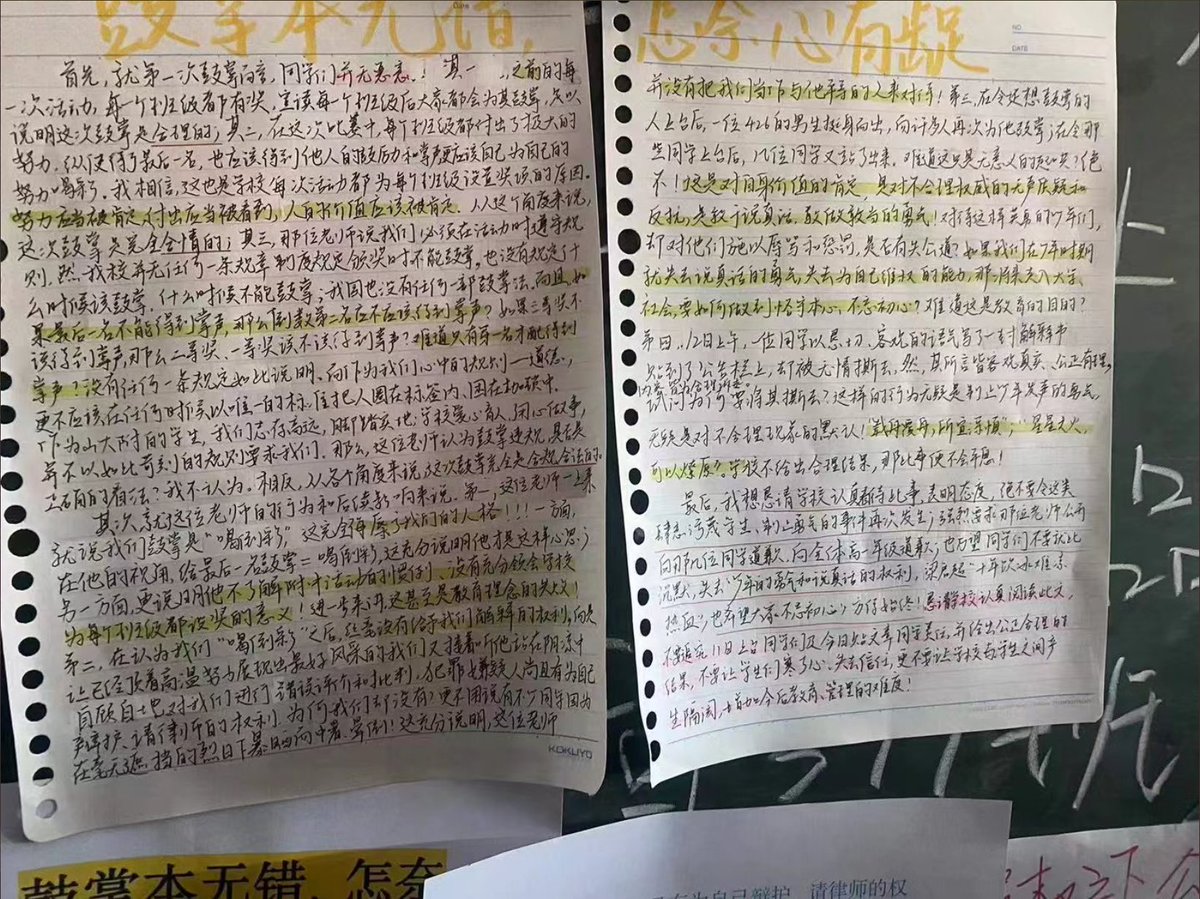 鼓掌本无错,
首先,就第一次鼓掌而言,同学们并无恶意!其一,之前的每
一次活动,每一个班级都有奖,宣读每一个班级后大家都会为其鼓掌,足以
说明这次鼓掌是合理的;其二,在这次比赛中,每个班级都付出了极大的
努力,纵使得了最后一名,也应该得到他人的鼓励和掌声更应该自己为自己的
努力喝彩。我相信,这也是学校每次活动都为每个班级设置奖项的原因。
努力应当被肯定,付出应当被看到,人的价值应该被肯定。从这个角度来说,
这次鼓掌是完全合情的;其三,那位老师说我们必须在活动时遵守规
则,然我校并无任何一条规章制度规定颁奖时不能鼓掌,也没有规定什
么时候该鼓掌,什么时候不能鼓掌;我国也没有任何一部鼓掌法,而且,如
果最后一名不能得到掌声,那么倒数第二名应不应该得到掌声?如果三等奖不
该得到掌声,那么二等奖、一等奖该不该得到掌声?难道只有第一名才配得到
掌声?没有任何一条规定如此说明,而作为我们心中的规则——道德,
更不应该在任何时候以唯一的标准把人困在标签内、困在枷锁中。
作为山大附的学生,我们志存高远,脚踏实地;学校爱心育人,用心做事,
并不以如此苛刻的规则要求我们。那么,这位老师认为鼓掌违规,是否是
正确的看法?我不认为。相反,从各个角度来说,这次鼓掌完全是合规合法的
其次,就这位老师的行为和后续影响来说。第一,这位老师一上来
就说我们鼓掌是"喝倒彩",这完全侮辱了我们的人格!!!一方面,
在他的视角,给最后一名鼓掌=喝倒彩,这充分说明他才是这样心思;
另一方面,更说明他不了解附中活动的惯例、没有充分领会学校
为每个班级都设奖的意义!进一步来讲,这甚至是教育理念的失败!
第二,在认为我们"喝倒彩"之后,丝毫没有给予我们解释的权利,而是
让已经顶着高温努力展现出最好风采的我们又接着听他站在阴凉中
自顾自地对我们进行错误评价和批判。犯罪嫌疑人尚且有为自己
辩护、请律师的权利,为何我们却没有?更不用说有不少同学因为
在毫无遮挡的烈日下暴晒而中暑、晕倒!这充分说明,这位老师
KOKUYO
怎奈心有龊
NO
DATE
并没有把我们当作与他平等的人来对待!第三,在令是想鼓掌的
人上台后,一位426的男生挺身而出,而许多人再次为他鼓掌;在令那
些同学上台后,几位同学又站了出来。难道这只是无意义的起哄?绝
不!这是对自身价值的肯定,是对不合理权威的无声质疑和
反抗,是敢于说真话,敢做敢当的勇气!对待这样英勇的少年们,
却对他们施以辱骂和惩罚,是否有失公道?如果我们在少年时期
就失去说真话的勇气,失去为自己维权的能力,那将来走入大学、
社会,要如何做到恪守本心、不忘初心?难道这是教育的目的?
第四,12日上午,一位同学以恳切、客观的语气写了一封解释书
贴到了公告栏上,却被无情撕去,然,其所言皆客观真实、公正有理,
内容皆为合理诉求。
试问为何要将其撕去?这样的行为无疑是制止少年发声的勇气,
无疑是对不合理现象的默认!载舟覆舟,所宜深慎;"星星之火,
可以燎原"。学校不给出合理结果,那此事便不会平息!
最后,我想恳请学校认真看待此事,表明态度,绝不要令这类
肆意污蔑学生、制止勇气的事件再次发生;强烈要求那位老师公开
向那几位同学道歉,向全体高一年级道歉;也希望同学们不要就此
沉默,失去少年的勇气和说真话的权利,梁启超"十年饮冰,难凉
热血",也希望大家不忘初心,方得始终!恳请校认真阅读此文,
不追究11日上台同学们及今日贴文章同学责任,并给出公正合理的
结果,不要让学生们寒了心、失去信任,更不要让学校与学生之间产
生隔阂,增加今后教育、管理的难度!
鼓掌本无错,怎奈
有为自己辩护、请律师的权